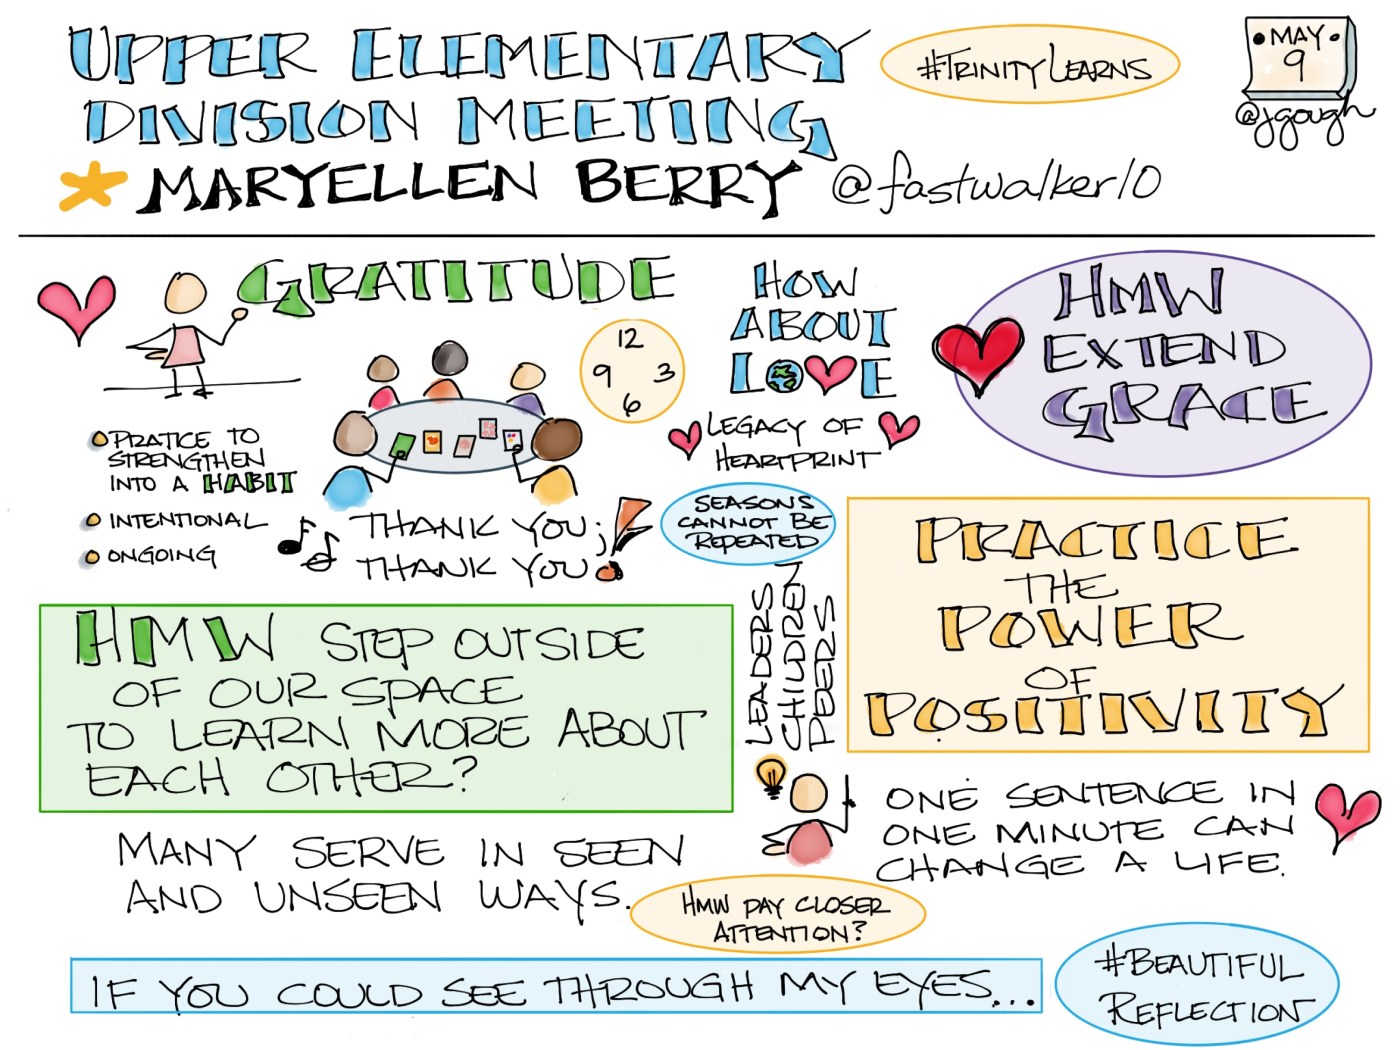 UPPER ELEMENTARY
DIVISION MEETING
MARYELLEN BERRY @fastwalker10
#TRINITYLEARNS
MAY
9
@jgough
GRATITUDE
PRATICE TO
STRENGTHEN
INTO A HABIT
INTENTIONAL
ONGOING
12
9 3
6
THANK YOU;
THANK YOU!
HOW
ABOUT
LOVE
LEGACY OF
HEARTPRINT
HMW
EXTEND
GRACE
SEASONS
CANNOT BE
REPEATED
LEADERS
CHILDREN
PEERS
PRACTICE
THE
POWER
OF
POSITIVITY
HMW STEP OUTSIDE
OF OUR SPACE
TO LEARN MORE ABOUT
EACH OTHER?
ONE SENTENCE IN
ONE MINUTE CAN
CHANGE A LIFE.
MANY SERVE IN SEEN
AND UNSEEN WAYS.
HMW PAY CLOSER
ATTENTION?
IF YOU COULD SEE THROUGH MY EYES...
#BEAUTIFUL
REFLECTION